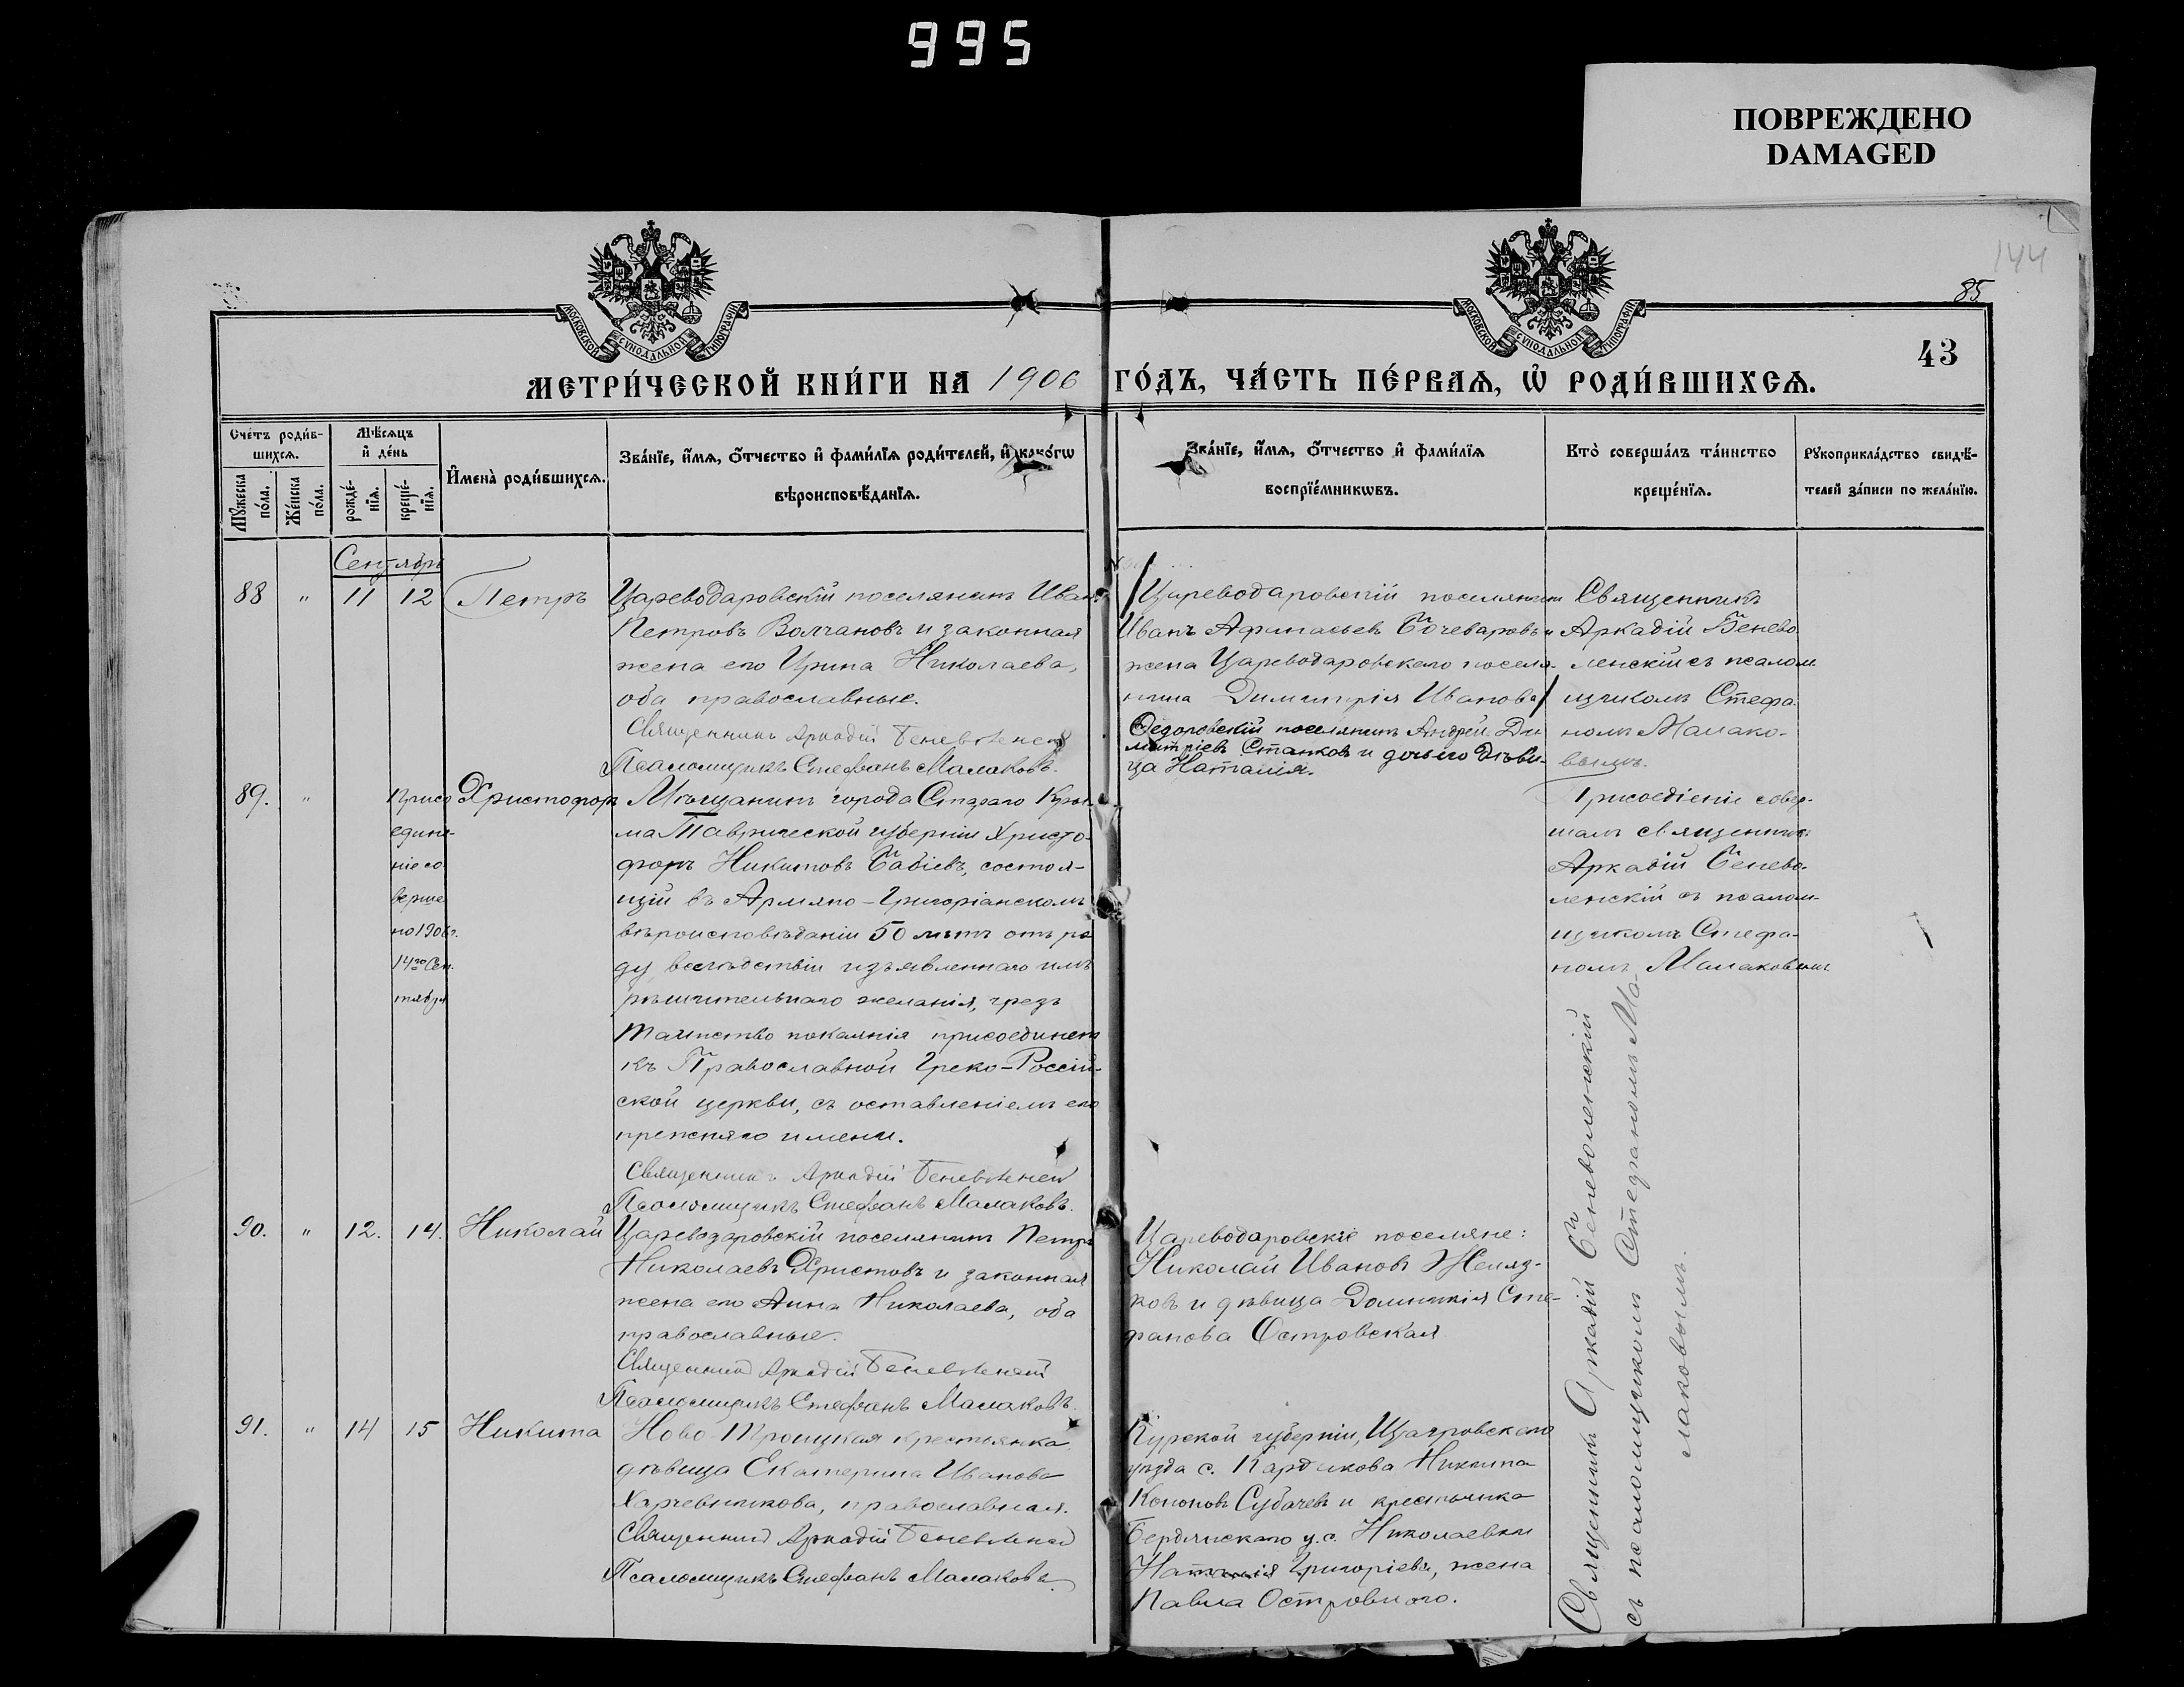 995
ПОВРЕЖДЕНО
DAMAGED
144
85
43
МОСКОВСКОЙ СѴНОДАЛЬНОЙ ТИПОГРАФІИ
МОСКОВСКОЙ СѴНОДАЛЬНОЙ ТИПОГРАФІИ
МЕТРИ́ЧЕСКОЙ КНИ́ГИ НА 1906 ГО́ДЪ, ЧА́СТЬ ПЕ́РВАѦ, Ѡ҆ РОДИ́ВШИХСѦ.
Сче́тъ роди́в-
шихсѧ.
Мꙋ́жеска по́ла.
Же́нска по́ла.
Мѣ́сѧцъ
и҆ де́нь
рожде́-
нїѧ.
креще́-
нїѧ.
И҆мена̀ роди́вшихсѧ.
Зва́нїе, и҆́мѧ, ѻ҆́тчество и҆ фами́лїѧ роди́телей, и҆ како́гѡ
вѣроисповѣ́данїѧ.
Зва́нїе, и҆́мѧ, ѻ҆́тчество и҆ фами́лїѧ
воспрїе́мникѡвъ.
Кто̀ соверша́лъ та́инство
креще́нїѧ.
Рꙋкоприкла́дство свидѣ́-
телей за́писи по жела́нїю.
Сентябрь
88 " 11 12 Петръ
Цареводаровскій поселянинъ Иванъ
Петровъ Волчановъ и законная
жена его Ирина Николаева,
оба православные.
Священникъ Аркадій
Псаломщикъ Стефанъ Малаковъ.
Цареводаровскій поселянин
Иванъ Афанасьевъ Бочеваровъ и
жена Цареводаровскаго поселя-
нина Димитрія Иванова
Ѳедоровскій поселянинъ Андрей Ди
митріевъ Станковъ и дочь его дѣви-
ца Наталія.
Священникъ
Аркадій Бенево-
ленскій съ псалом
щикомъ Стефа-
номъ Малако-
вымъ.
89. " Присо
едине-
ніе со
верше
но 1906 г.
14го Сен.
тября
Христофоръ
Мѣщанинъ города Стараго Кры-
ма Таврической губерніи Христо-
форъ Никитовъ Бабіевъ, состоя-
щій въ Армяно-Григоріанскомъ
вѣроисповѣданіи 50 лѣтъ отъ ро
ду, вслѣдствіи изъявленнаго имъ
рѣшительнаго желанія, чрезъ
таинство покаянія присоединенъ
къ Православной Греко-Россій-
ской церкви, съ оставленіемъ его
прежняго имени.
Священникъ Аркадій
Псаломщикъ Стефанъ Малаковъ.
Присоедіеніе совер-
шалъ священникъ
Аркадій Бенево-
ленскій съ псалом-
щикомъ Стефа-
номъ Малаковымъ
90. " 12. 14. Николай
Цареводаровскій поселянинъ Петръ
Николаевъ Христовъ и законная
жена его Анна Николаева, оба
православные.
Священникъ Аркадій
Псаломщикъ Стефанъ Малаковъ.
Цареводаровскіе поселяне:
Николай Ивановъ Желяз-
ковъ и дѣвица Домникія Сте-
фанова Островская
Священникъ Аркадій Беневоленскій
съ псаломщикомъ Стефаномъ Ма-
лаковымъ.
91. " 14 15 Никита
Ново-Троицкая крестьянка
дѣвица Екатерина Иванова
Харчевникова, православная.
Священникъ Аркадій
Псаломщикъ Стефанъ Малаковъ
Курской губерніи, Щигровскаго
уѣзда с. Никита
Кононовъ Субачевъ и крестьянка
Бердянскаго у. с. Николаевки
Наталія Григоріева, жена
Павла Островного.